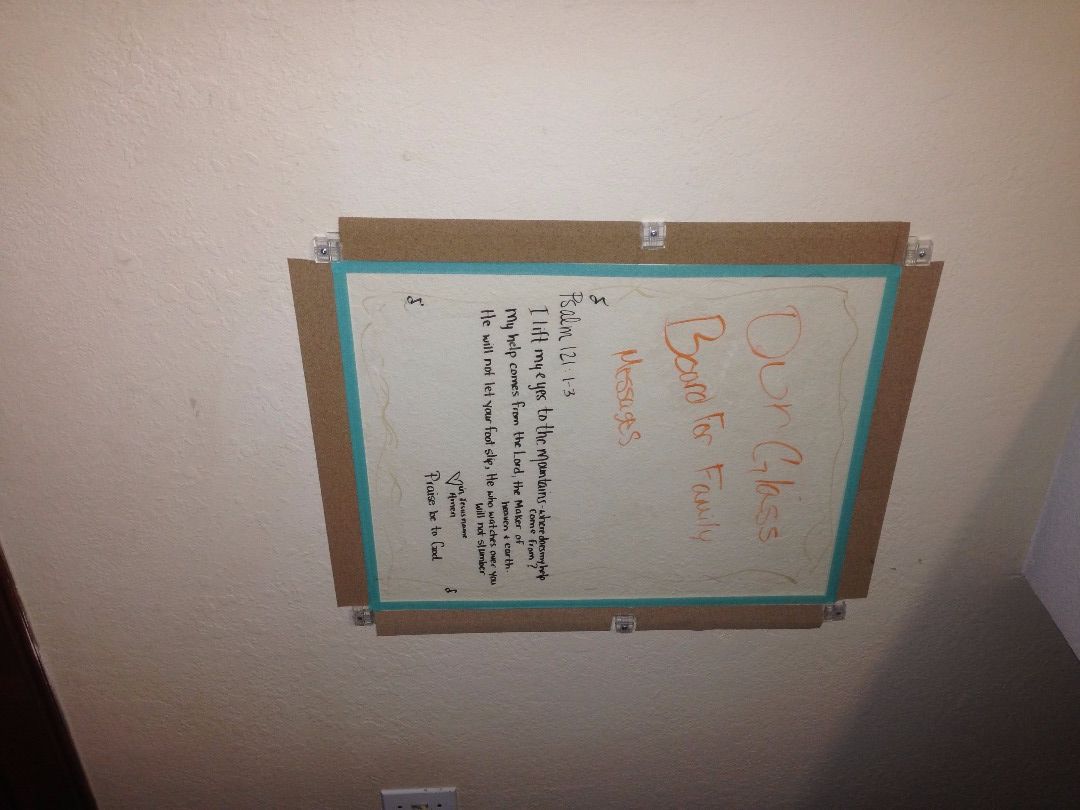 Our Glass
Board For Family
Messages
Psalm 121:1-3
I lift my eyes to the mountains-where does my help
come from?
My help comes from the Lord, the Maker of
heaven & earth.
He will not let your foot slip, He who watches over you
will not slumber
in Jesus name
Amen
Praise be to God